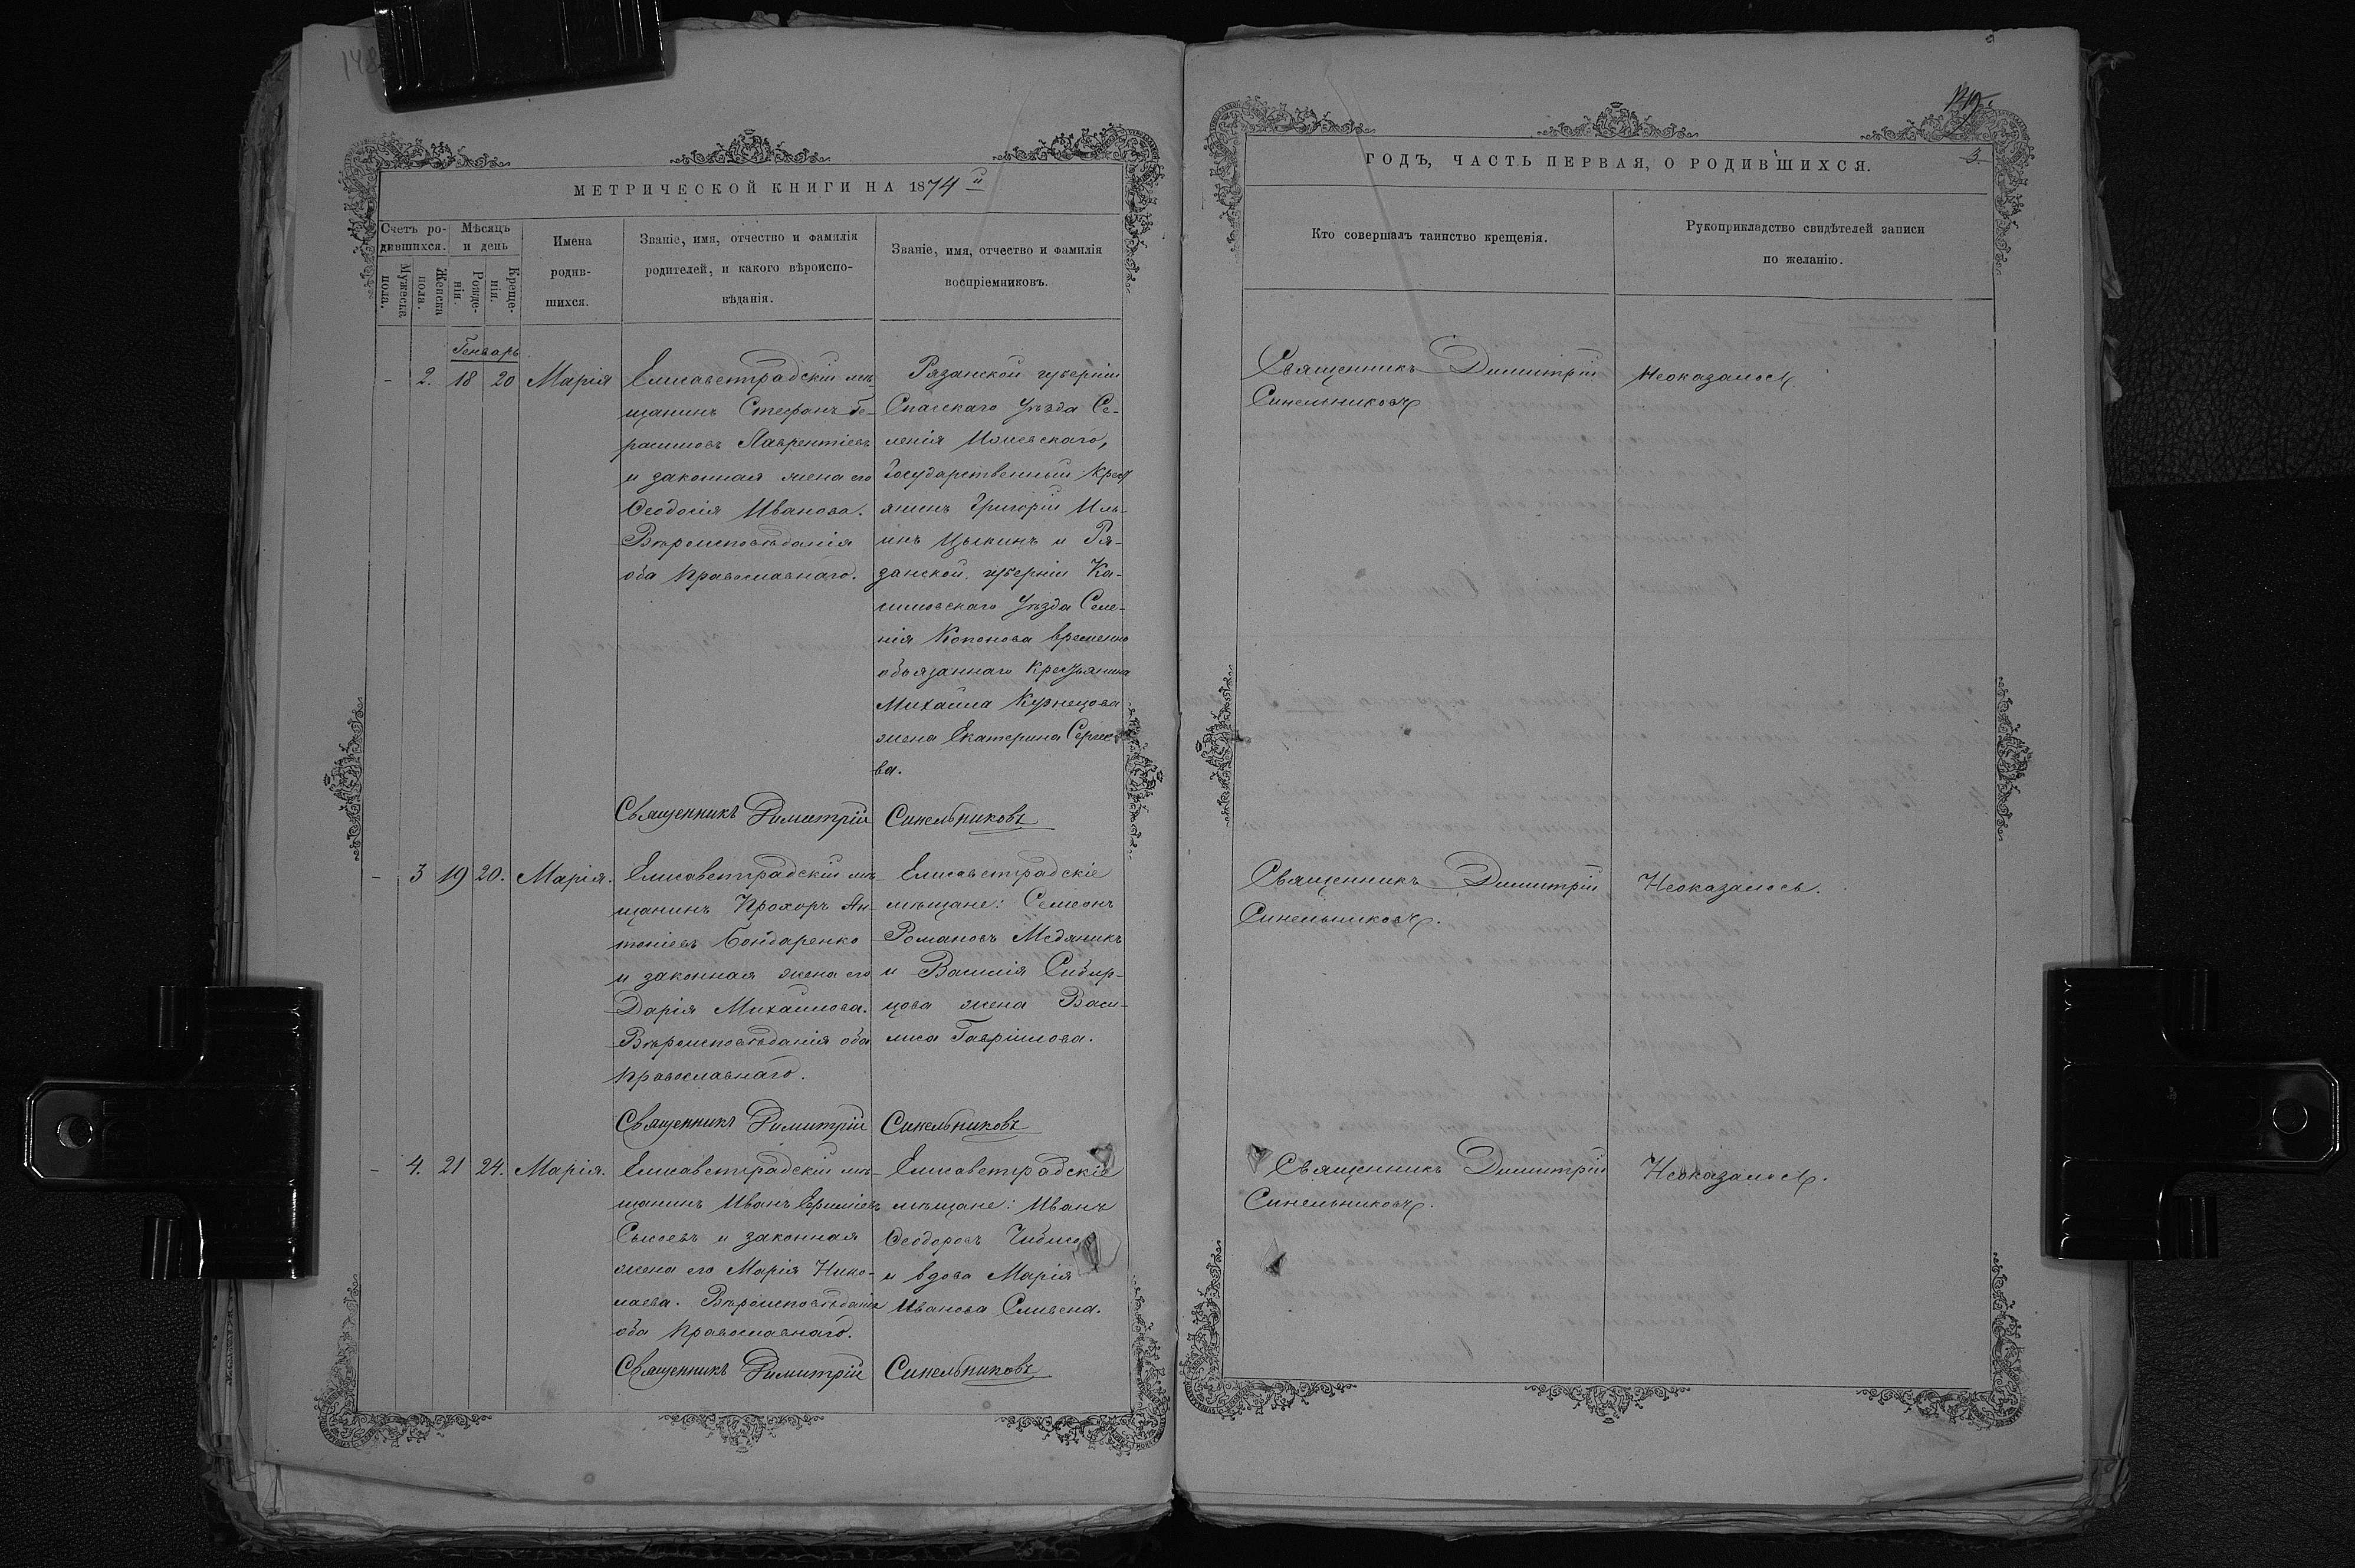 МЕТРИЧЕСКОЙ КНИГИ НА 1874й
Счетъ ро-
дившихся.
Мѣсяцъ
и день
Мужеска
пола.
Женска
пола.
Рожде-
нія.
Креще-
нія.
Имена
родив-
шихся.
Званіе, имя, отчество и фамилія
родителей, и какого вѣроиспо-
вѣданія.
Званіе, имя, отчество и фамилія
воспріемниковъ.
Генварь
- 2. 18 20 Марія
Елисаветградскій мѣ-
щанинъ Стефанъ Ге-
расимовъ Лаврентіевъ
и законная жена его
Ѳеодосія Иванова.
Вѣроисповѣданія
оба православнаго.
Рязанской губерніи
Спасскаго уѣзда Се-
ленія
Государственный крест
янинъ Григорій Иль-
инъ Цыкинъ и Ря-
занской губерніи Ка-
симовскаго уѣзда Селе-
нія временно
обязаннаго крестьянина
Михаила Кузнецова
жена Екатерина Сергее-
ва.
Священникъ Димитрій Синельниковъ
- 3 19 20. Марія.
Елисаветградскій мѣ-
щанинъ Прохоръ Ан-
тоніевъ Бондаренко
и законная жена его
Дарія Михайлова.
Вѣроисповѣданія оба
православнаго.
Елисаветградскіе
мѣщане: Симеонъ
Романовъ Медяникъ
и Василія Сибир-
цова жена Васи-
лиса Гавріилова.
Священникъ Димитрій Синельниковъ
- 4. 21 24. Марія.
Елисаветградскій мѣ-
щанинъ Иванъ
Сысоевъ и законная
жена его Марія Нико-
лаева. Вѣроисповѣданія
оба православнаго.
Елисаветградскіе
мѣщане: Иванъ
Ѳеодоровъ
и вдова Марія
Иванова
Священникъ Димитрій Синельниковъ
3.
ГОДЪ, ЧАСТЬ ПЕРВАЯ, О РОДИВШИХСЯ.
Кто совершалъ таинство крещенія.
Рукоприкладство свидѣтелей записи
по желанію.
Священникъ Димитрій
Синельниковъ
Неоказалось.
Священникъ Димитрій
Синельниковъ.
Неоказалось.
Священникъ Димитрій
Синельниковъ.
Неоказалось.